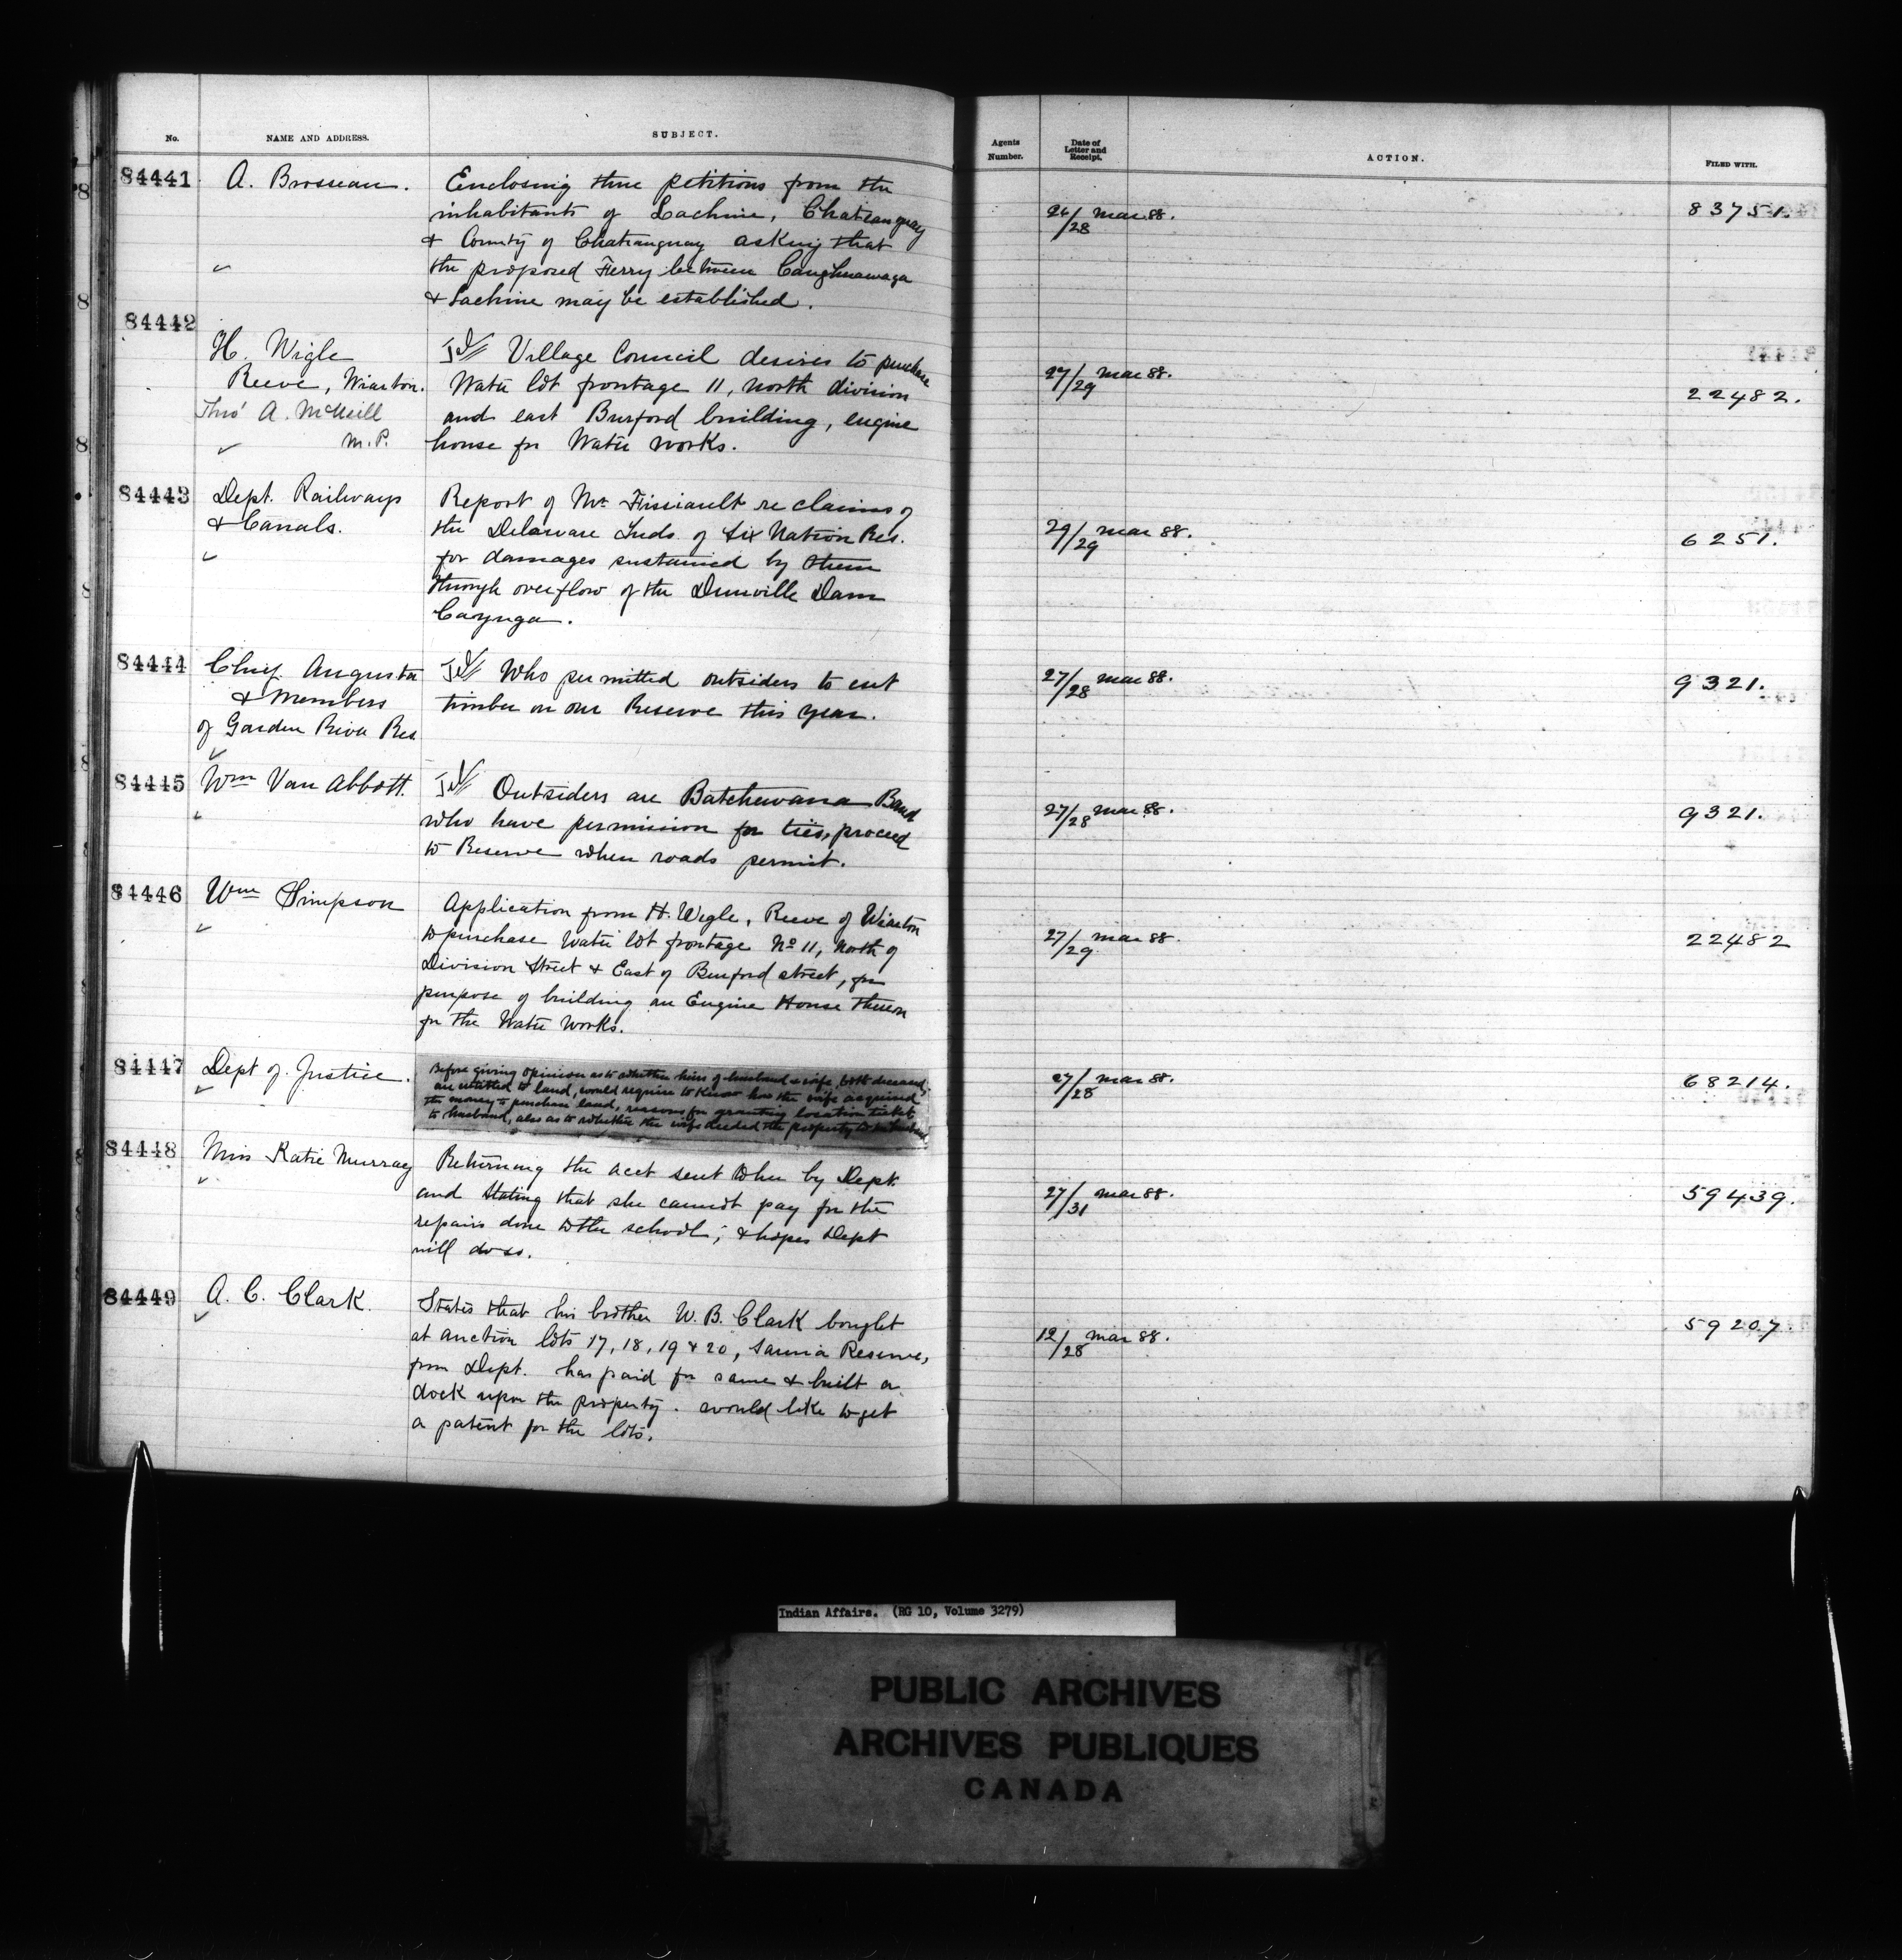 No. NAME AND ADDRESS. SUBJECT.
84441 A. Brosseau. Enclosing three petitions from the
inhabitants of Lachine, Chateauguay
& County of Chateauguay asking that
the proposed Ferry between Caughnawaga
& Lachine may be established.
84442
H. Wigle Tel// Village Council desires to purchase
Reeve, Wiarton. Water lot frontage 11, north division
Thro' A. McNeill and east Burford building, engine
M.P. house for Water works.
84443 Dept. Railways Report of Mr. re claims of
& Canals. the Delaware Inds. of Six Nation Res.
for damages sustained by them
through overflow of the Dunville Dam
Cayuga.
84444 Chief Augusta Tel// Who permitted outsiders to cut
& Members timber on our Reserve this year.
of Garden River Res.
84445 Wm Van Abbott. Tel// Outsiders are Batchewana Band
who have permission for ties, proceed
to Reserve when roads permit.
84446 Wm Simpson Application from H. Wigle, Reeve of Wiarton
to purchase Water lot frontage No 11, North of
Division Street & East of Burford street, for
purpose of building an Engine House thereon
for the Water Works.
84447 Dept of Justice. Before giving opinion as to whether heirs of husband & wife, both deceased,
are entitled to land, would require to know how the wife acquired
the money to purchase land, reasons for granting location ticket
to husband, also as to whether the wife deeded the property to husband
84448 Miss Katie Murray Returning the acct sent to her by Dept.
and stating that she cannot pay for the
repairs done to the school; & hopes Dept
will do so.
84449 A. C. Clark. States that his brother W. B. Clark bought
at auction lots 17, 18, 19 & 20, Sarnia Reserve,
from Dept. has paid for same & built a
dock upon the property. would like to get
a patent for the lots.
Agents Number. Date of Letter and Receipt. ACTION. FILED WITH.
26/28 Mar 88. 83751.
27/29 Mar 88. 22482.
29/29 Mar 88. 6251.
27/28 Mar 88. 9321.
27/28 Mar 88. 9321.
27/29 Mar 88. 22482
27/28 Mar 88. 68214.
27/31 Mar 88. 59439.
12/28 Mar 88. 59207.
Indian Affairs. (RG 10, Volume 3279)
PUBLIC ARCHIVES
ARCHIVES PUBLIQUES
CANADA